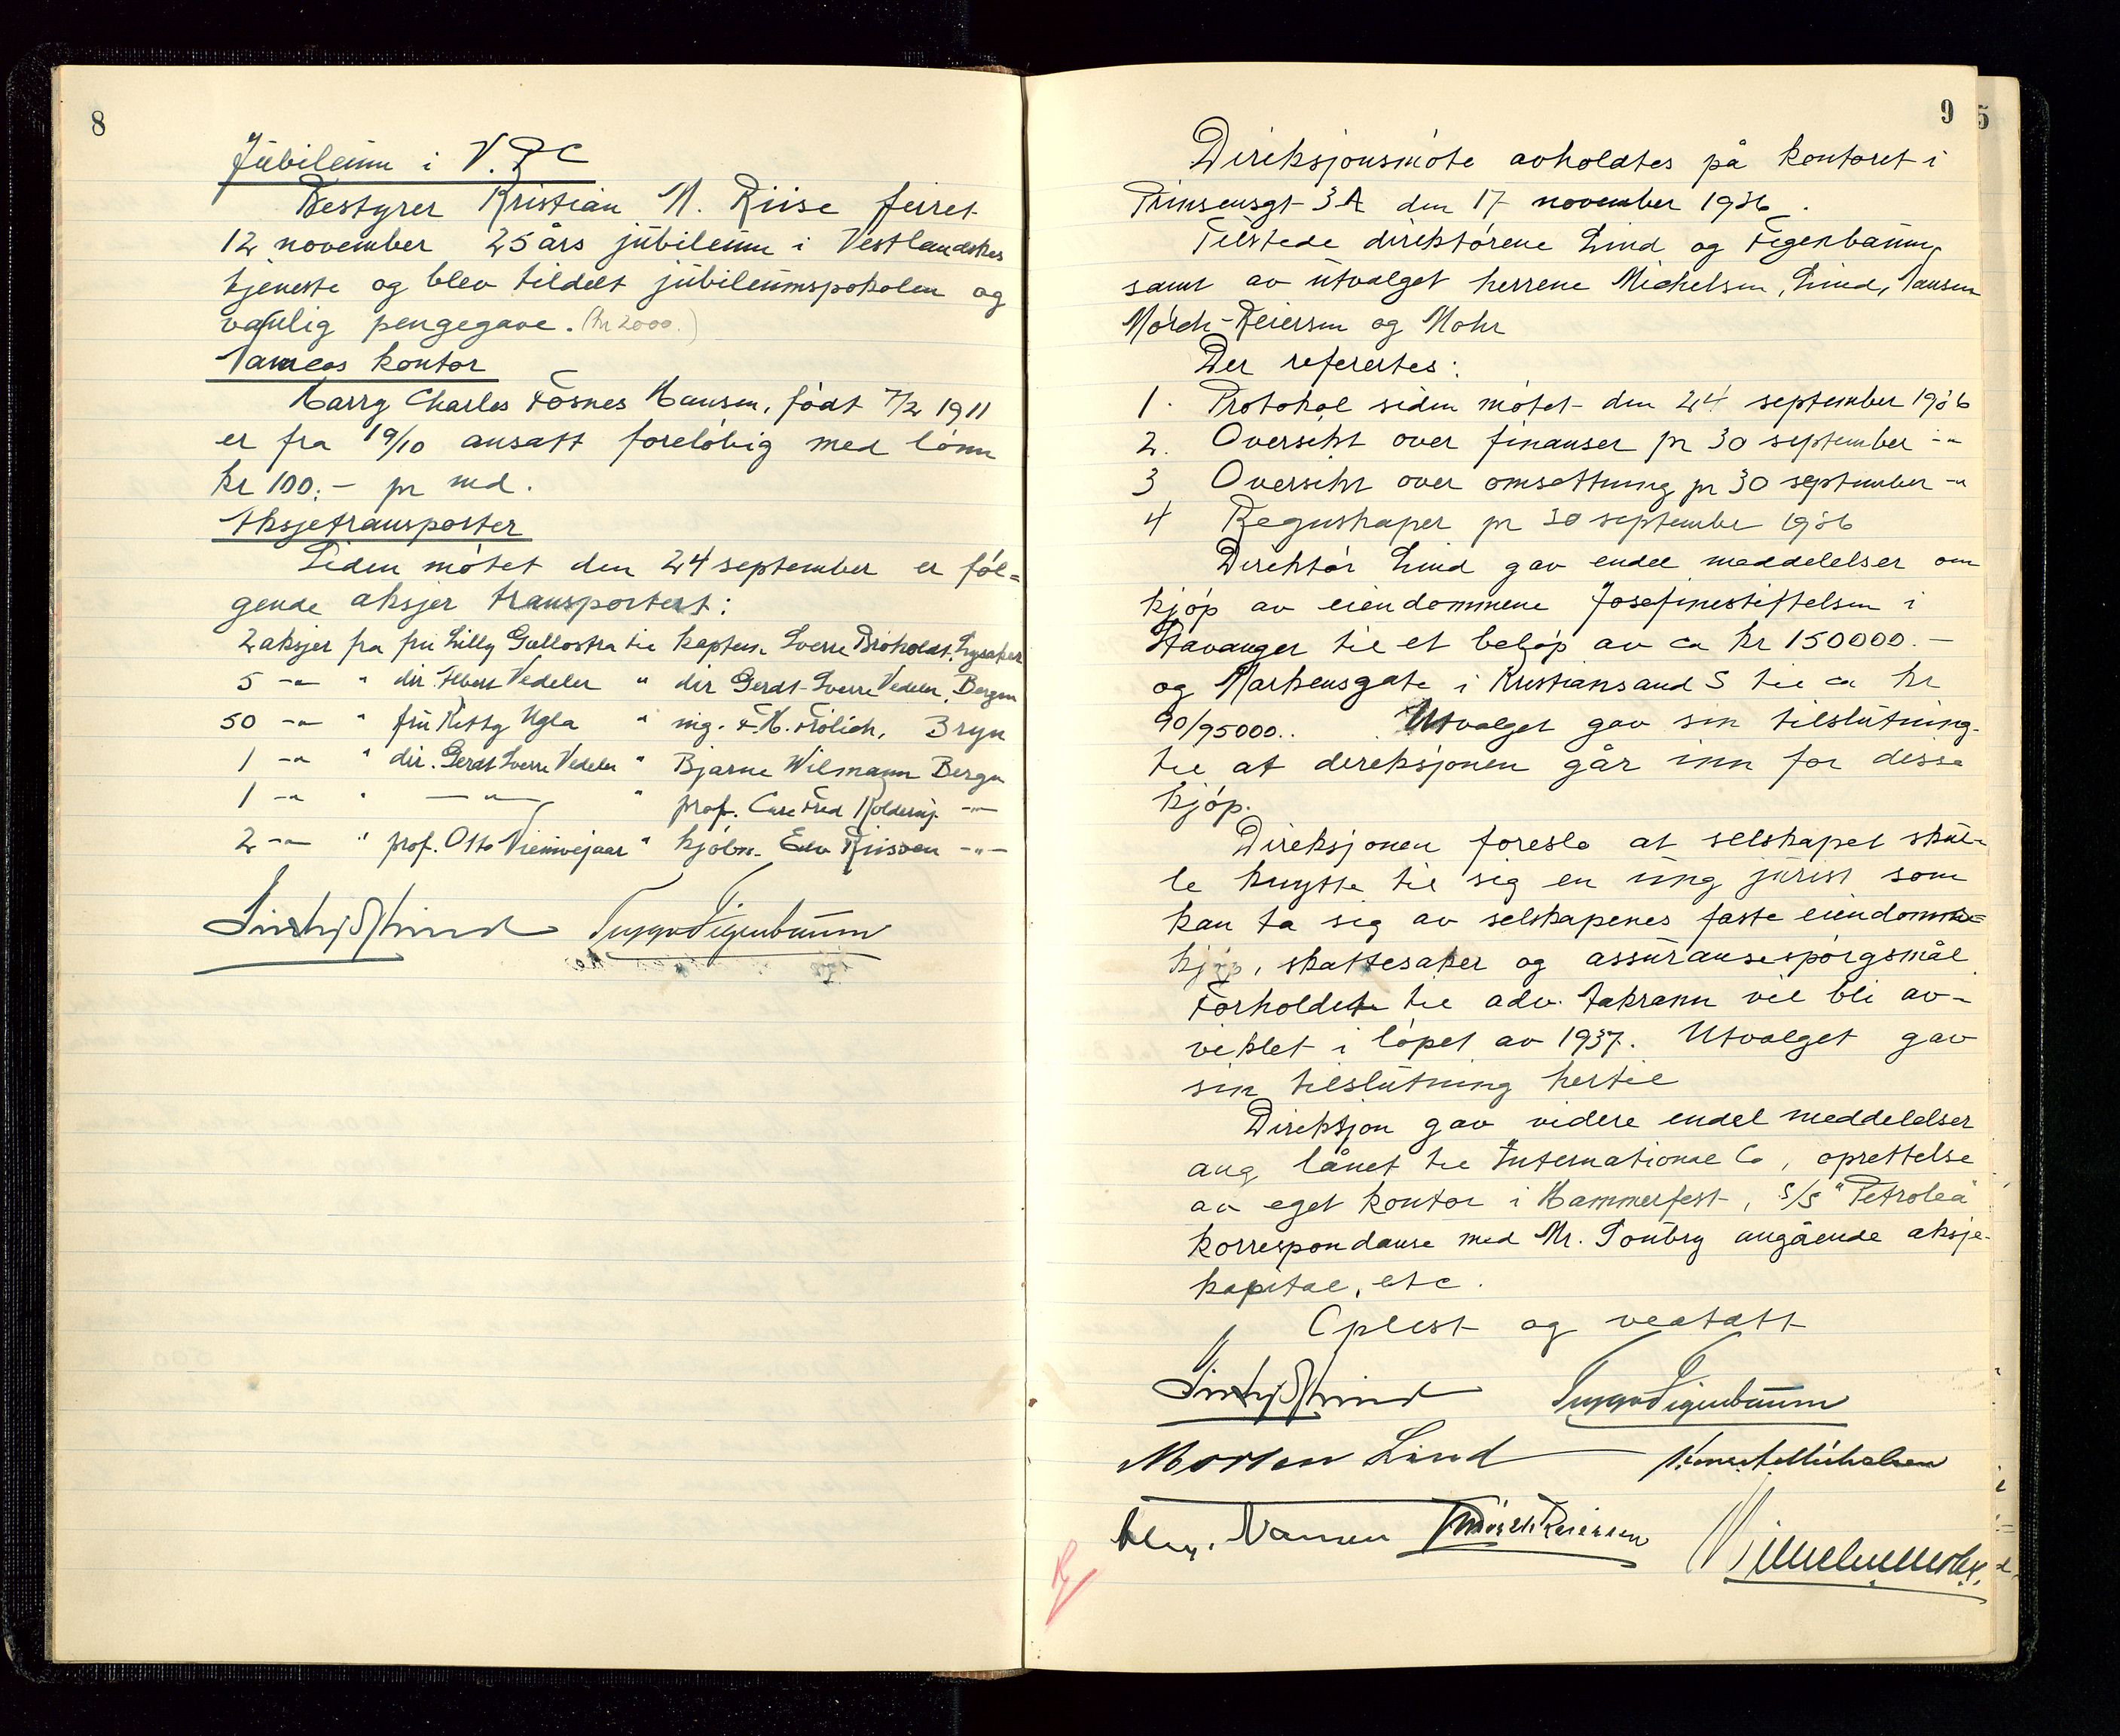 8
Jubileum i V.P.C
Bestyrer Kristian M. Riise feiret
12 november 25 års jubileum i Vestlandskes
tjeneste og blev tildelt jubileumspokalen og
vanlig pengegave. (kr 2000.)
kontor
Harry Charles Fosnes Hansen, født 7/2 1911
er fra 19/10 ansatt foreløbig med lønn
kr 100.- pr md.
Aksjetransporter
Siden møtet den 24 september er føl=
gende aksjer transportert:
2 aksjer fra fru Lilly Gullostra til kaptein Sverre Broholdt, Lysaker
5 -"- " dir. Albert Vedeler " dir Gerdt Sverre Vedeler, Bergen
50 -"- " fru Kitty Ugla " ing. F.H. Frölich, Bryn
1 -"- " dir. Gerdt Sverre Vedeler " Bjarne Wilmann Bergen
1 -"- " -"- " prof. Carl Fred Kolderup -"-
2 -"- " prof. Otto " kjøbm. Edv Riisøen -"-
9
5
Direksjonsmøte avholdtes på kontoret i
Prinsensgt 3A den 17 november 1936.
Tilstede direktørene Lind og Figenbaum,
samt av utvalget herrene Michelsen, Lind, Nansen
Mørch-Reiersen og Mohr
Der refertes:
1. Protokol siden møtet den 24 september 1936
2. Oversikt over finanser pr 30 september -"-
3 Oversikt over omsettning pr 30 september -"-
4 Regnskaper pr 30 september 1936
Direktør Lind gav endel meddelelser om
kjøp av eiendommene Josefinestiftelsen i
Stavanger til et beløp av ca kr 150000.-
og Markensgate i Kristiansand S til ca kr
90/95000.. Utvalget gav sin tilslutning
til at direksjonen går inn for disse
kjøp.
Direksjonen foreslo at selskapet skul-
le knytte til sig en ung jurist som
kan ta sig av selskapenes faste eiendomme=
kjøp, skattesaker og assuransespørgsmål
Forholdet til adv. vil bli av-
viklet i løpet av 1937. Utvalget gav
sin tilslutning hertil
Direksjon gav videre endel meddelelser
ang lånet til Internationale Co, oprettelse
av eget kontor i Hammerfest, S/S "Petrolea"
korrespondanse med Mr. angående aksje-
kapital, etc.
Oplest og vedtatt
Morten Lind
Nansen Mørch Reiersen Wilhelm Mohr